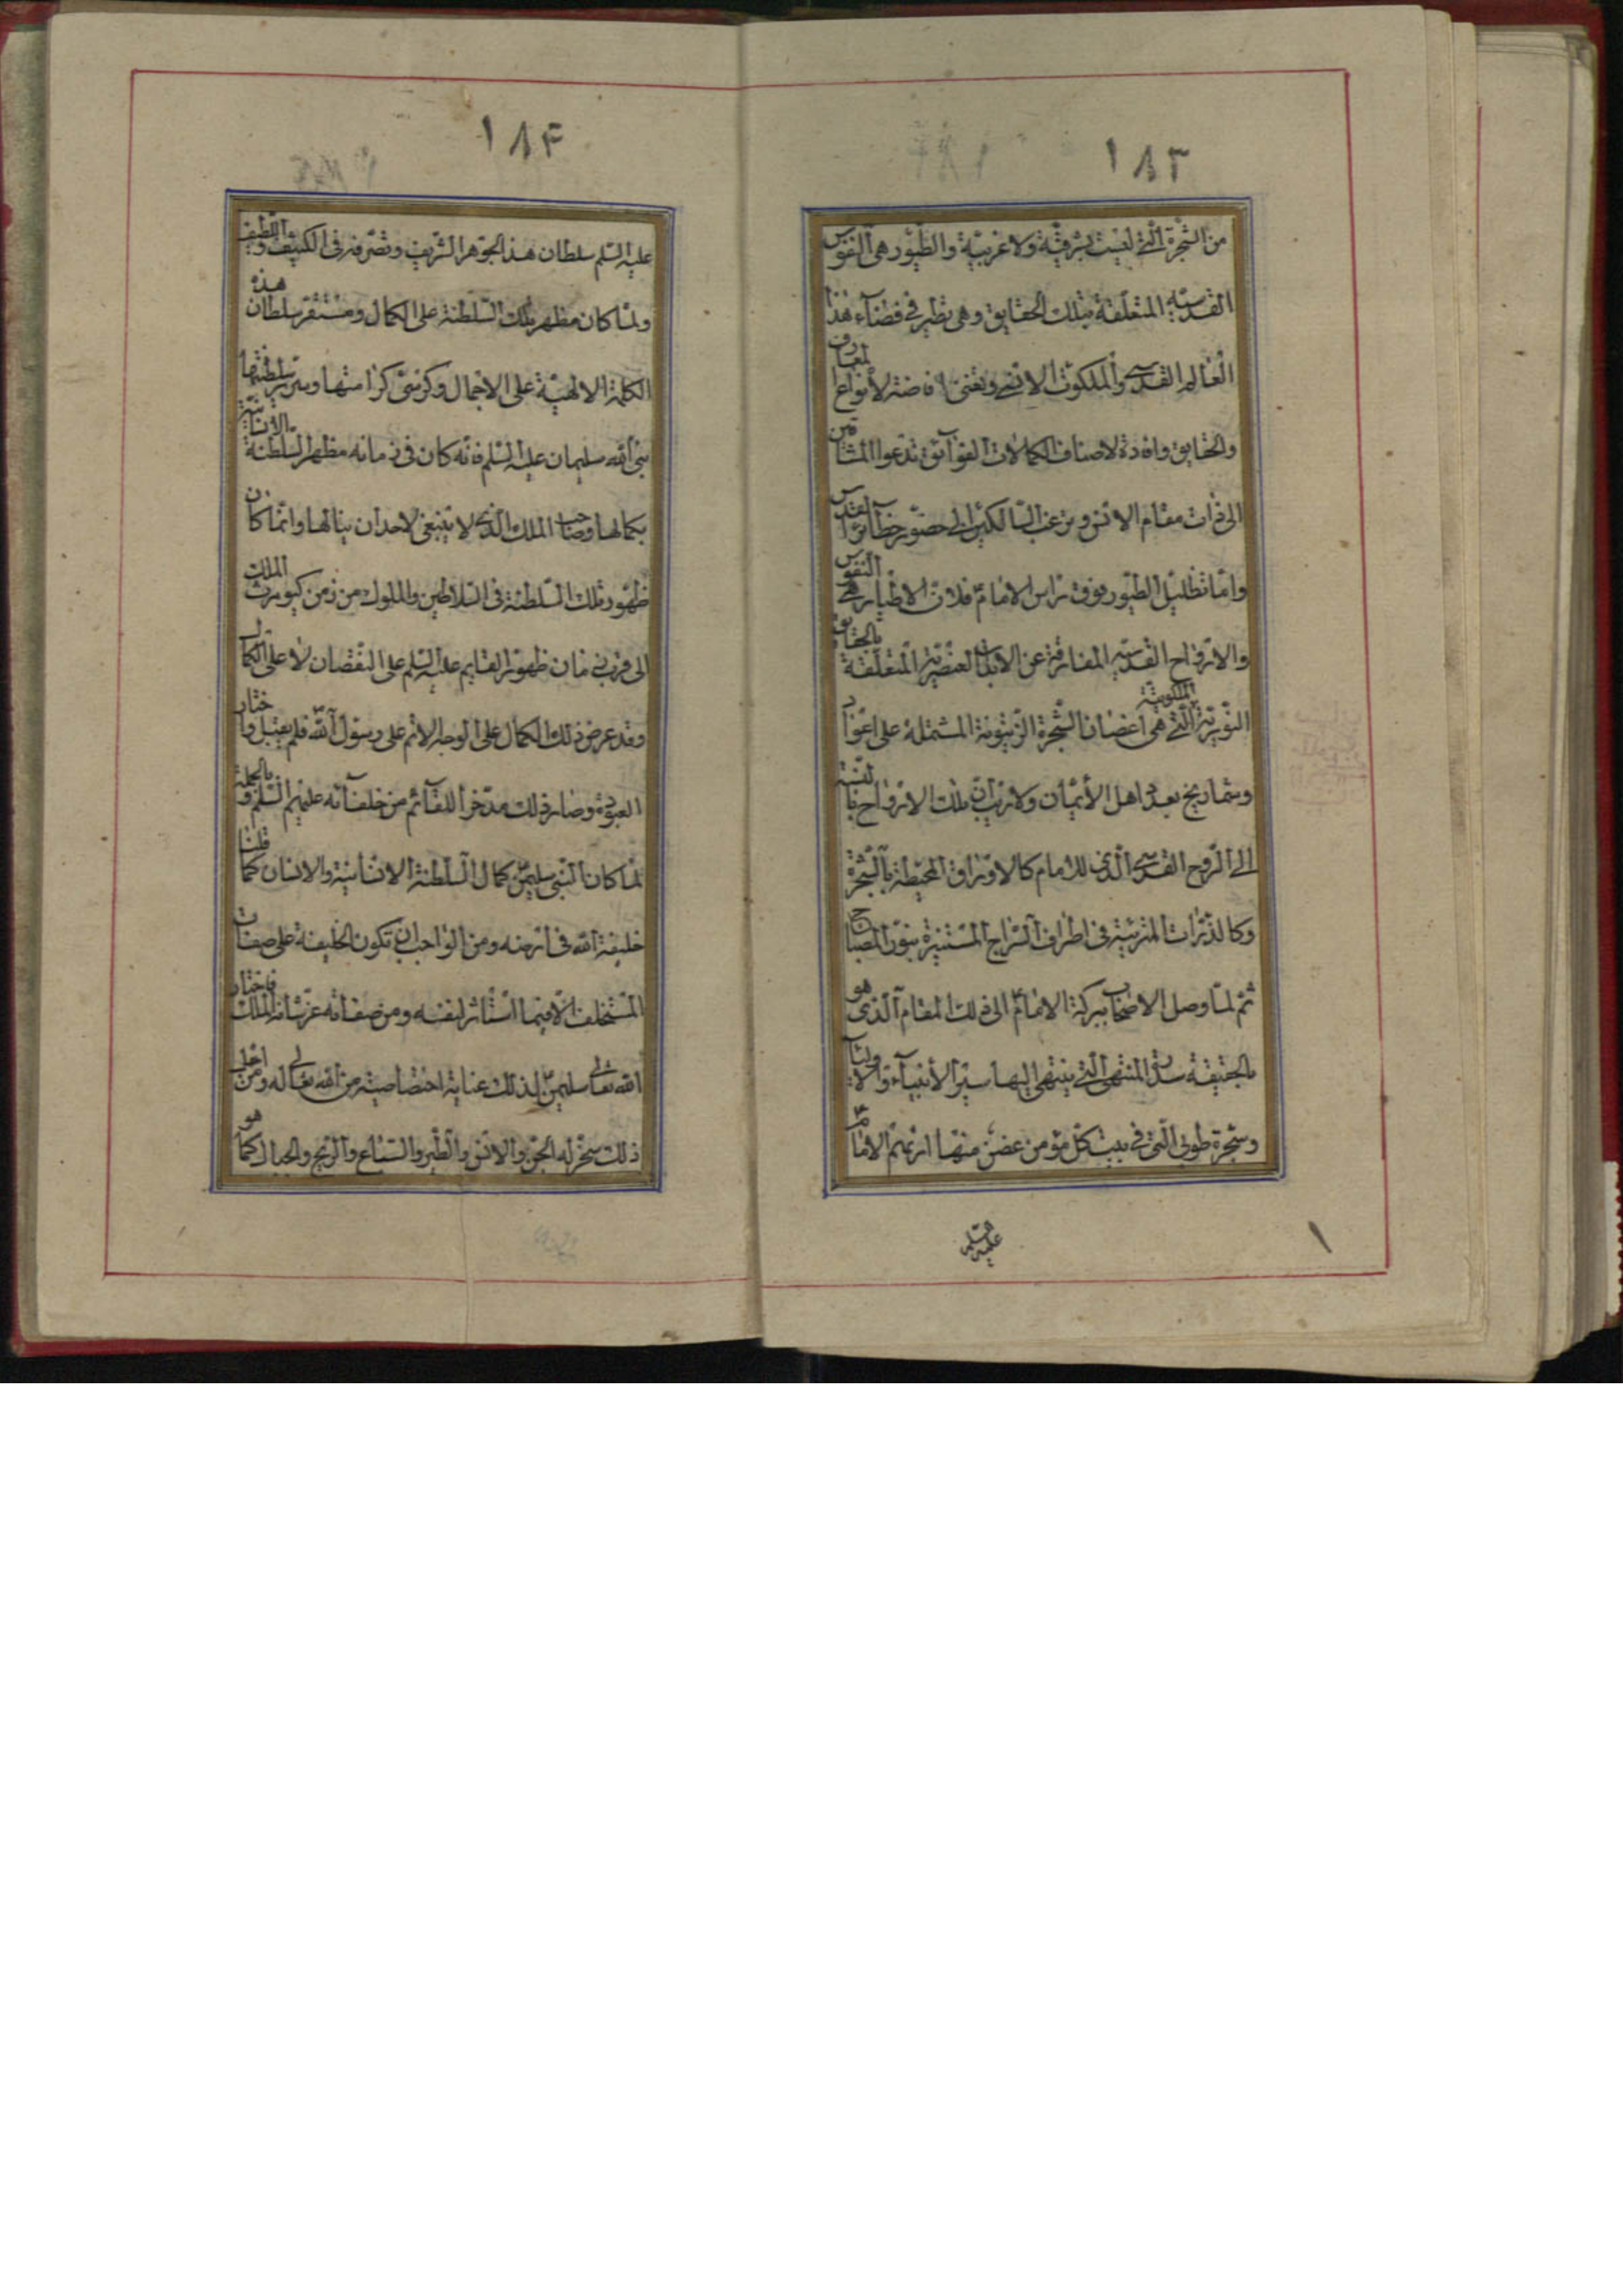 ١٨٣
من الشجرة الّتي ليست بشرقيّة ولا غربيّة والطّيور هي النّفوس
القدسيّة المتعلّقة بتلك الحقايق وهي تطير في فضآء هذا
العالم القدسي والملكوت الانسي وتغنّى افاضة لأنواع المعارف
والحقايق وافادة لاصناف الكمالات الفوآئق تدعوا المشتاقين
الى ذرات مقام الانس وترغب السّالكين الى حضور حظآئر القدس
وامّا تظليل الطّيور فوق راس الامام فلانّ الاطيار هي النّفوس
والارواح القدسيّة المفارقة عن الأبدان العنصريّة المتعلّقة بالحقايق
النّوريّة الملكوتيّة الّتي هي اغصان الشّجرة الزّيتونة المشتملة على اعواد
وشماريخ بعدد اهل الأيمان ولا ريب انّ تلك الارواح بالنّسبة
الى الرّوح القدسي الّذي للامام كالاوراق المحيطة بالشّجرة
وكالذّرات المنبثّة في اطراف السّراج المستنيرة بنور المصباح
ثمّ لمّا وصل الاصحاب ببركة الامام الى ذلك المقام الّذي هو
بالحقيقة سدرة المنتهى الّتي ينتهي اليها سير الأنبيآء والاوليآء
وشجرة طوبى الّتي في بيت كلّ مؤمن غصن منها اريهم الامام
عليه السّلم
١٨٤
عليه السّلم سلطان هذا الجوهر الشّريف وتصرّفه في الكثيف واللّطيف
ولمّا كان مظهر تلك السّلطنة على الكمال ومستقرّ سلطان هذه
الكلمة الالهيّة على الاجمال وكرسيّ كرامتها وسرير سلطنتها
نبيّ اللّه سليمان عليه السّلم فانّه كان في زمانه مظهر السّلطنة الانسانيّة
بكمالها وصاحب الملك الّذي لا ينبغي لاحد ان ينالها وانّما كان
ظهور تلك السّلطنة في السّلاطين والملوك من زمن كيومرث الملك
الى قرب زمان ظهور القايم عليه السّلم على النّقصان لا على الكمال
وقد عرض ذلك الكمال على الوجه الاتم على رسول اللّه فلم يقبل واختار
العبوديّة وصار ذلك مدّخرا للقآئم من خلفآئه عليهم السّلم وبالجملة
لمّا كان النّبي سليمن كمال السلطنة الانسانيّة والانسان كما قلنا
خليفة اللّه في ارضه ومن الواجب ان تكون الخليفة على صفات
المستخلف الّا فيما استأثر لنفسه ومن صفاته عزّ شانه الملك فاختار
اللّه تعالى سليمن لذلك عناية اختصاصيّة من اللّه تعالى له ومن اجل
ذلك سخّر له الجنّ والانس والطّير والسّباع والرّيح والجبال كما هو